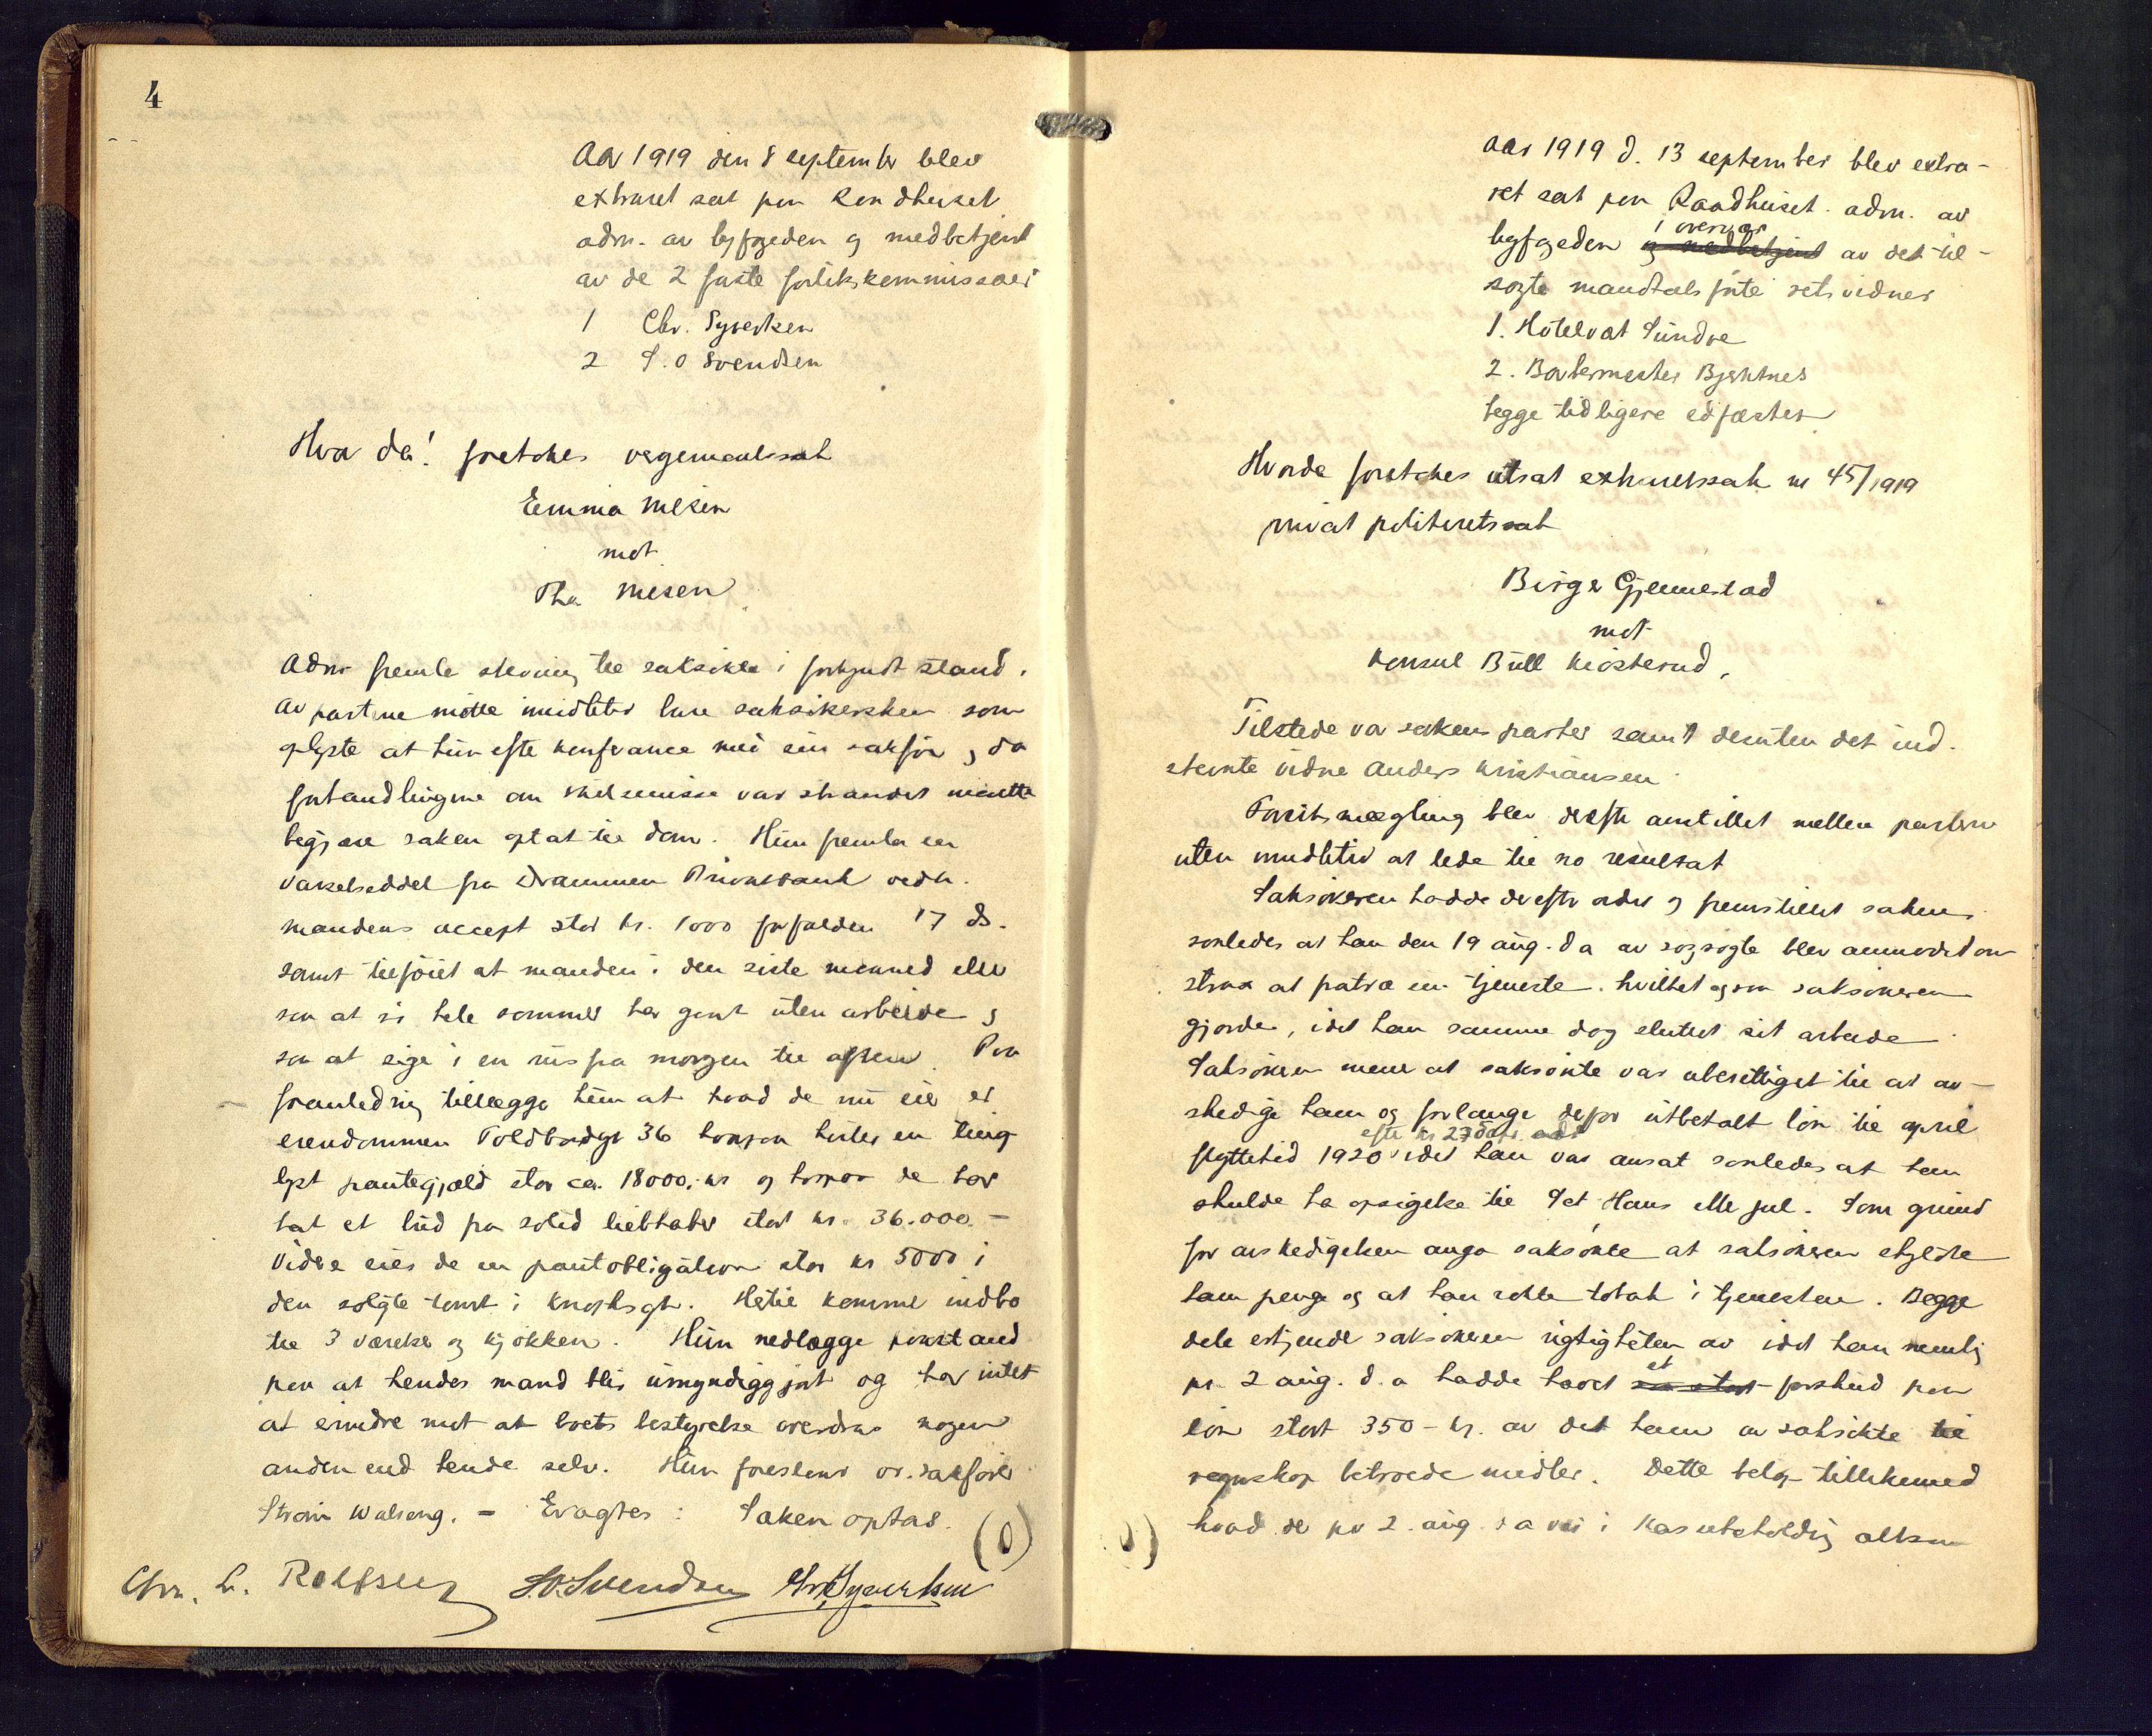 4
Aar 1919 den 8 september blev
extraret sat paa Raadhuset
adm. av byfogeden og medbetjent
av de 2 faste forlikskommissærer
1 Chr. Syvertsen
2 S. O Svendsen
Hvor da! foretokes vergemaalssak
Emma Mesen
mot
Tho. Mesen
Adm fremla stevning til saksøkte i forkyndt stand.
Av partene møtte imidlertid bare saksøkersken som
oplyste at hun efter konferance med sin sakfører, da
forhandlingene om skilsmisse var strandet maatte
begjære saken optat til dom. Hun fremla en
varselseddel fra Drammens Privatbank vedk.
mandens accept stor kr. 1000 forfalden 17 ds.
samt tilføiet at manden i den siste maaned eller
saa at si hele sommer har gaat uten arbeide og
saa at sige i en rus fra morgen til aften. Paa
foranledning tillægger hun at hvad de nu eier er
eiendommen Toldbodgt 36 hvorpaa hviler en ting
lyst pantegjæld stor ca. 18000,- kr og hvorpaa de har
hat et bud fra solid liebhaber stort kr. 36.000.-
Videre eies de en pantobligation stor kr 5000 i
den solgte tomt i Engtsgt. Hertil kommer indbo
til 3 værelser og kjøkken. Hun nedlægger paastand
paa at hendes mand blir umyndiggjort og har intet
at erindre mot at boets bestyrelse overdras nogen
anden end hende selv. Hun foreslaar or. sakfører
Strøm Walseng. - Eragtes: Saken optas.
(O)
Chr. L. Rolfsen S.O. Svendsen Chr Syvertsen
Aar 1919 d. 13 september blev extra-
ret sat paa Raadhuset. adm. av
i overvær
byfogeden og medbetjent av de til-
sagte mandtalsførte retsvidner
1. Hotelvært Sundre
2. Bakermester Bjerknes
begge tidligere edfæstet
Hvorda foretokes utsat extraretssak nr 45/1919
privat politiretssak
Birger Gjennestad
mot
Konsul Bull Kiøsterud,
Tilstede var sakens parter samt desuten det ind-
stevnte vidne Anders Kristiansen
Forliksmægling blev derefter anstillet mellem parterne
uten imidlertid at lede til no resultat
Saksøkeren hadde derefter ordet og fremstillet saken
saaledes at han den 19 aug. d a av sagsøgte blev anmodet om
strax at fratræ sin tjeneste. hvilket ogsaa saksøkeren
gjorde, idet han samme dag sluttet sit arbeide
Saksøkeren mener at saksøkte var uberettiget til at av-
skedige ham og forlanger derfor utbetalt løn til april
efter kr 275
flyttetid 1920 idet han var ansat saaledes at han
skulde ha opsigelse til Sct Hans eller jul. Som grund
for avskedigelsen angav saksøkte at saksøkeren skyldte
ham penge og at han røkte tobak i tjenesten. Begge
dele erkjendte saksøkeren rigtigheten av idet han nemlig
et
pr. 2 aug. d. a hadde hævet en stor forskud paa
løn stort 350 - kr. av det ham av saksøkte til
regnskap betroede midler. Dette beløp tillikemed
hvad de pr 2. aug. d a var i kassebeholdning altsaa